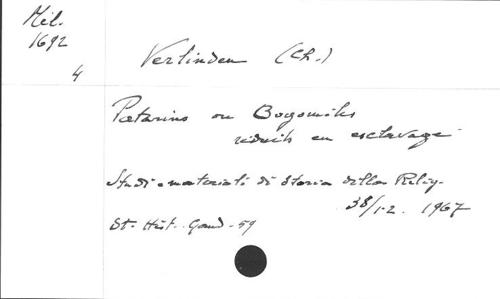 Mél.
1692
4
Verlinden (Ch.)
Patarins ou Bogomiles
réduits en esclavage
Studi e materiali di Storia della Relig.
38/1-2. 1967
St. Hist. Gand - 59